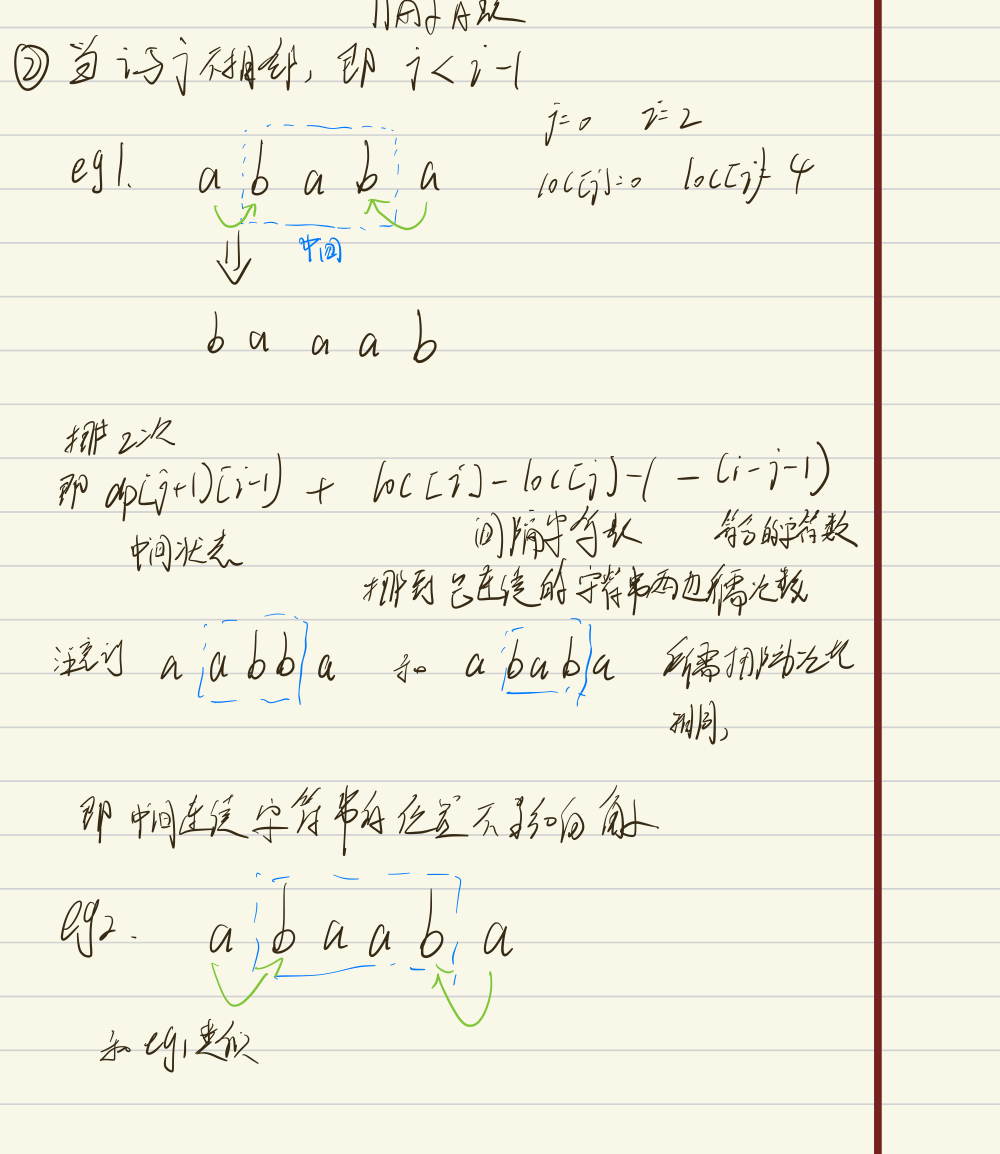 ② 当 i与j不相邻, 即 j < i-1
j=0 i=2
eg1. a b a b a
loc[j]=0 loc[i]=4
中间
b a a a b
挪2次
即 dp[j+1][i-1] + loc[i] - loc[j] - 1 - (i-j-1)
中间状态 间隔字符数 符合的字符数
挪到已连续的字符串两边所需次数
注意到 a a b b a 和 a b a b a 所需挪动次数
相同,
即中间连续字符串的位置不影响
eg2. a b a a b a
和 eg1类似